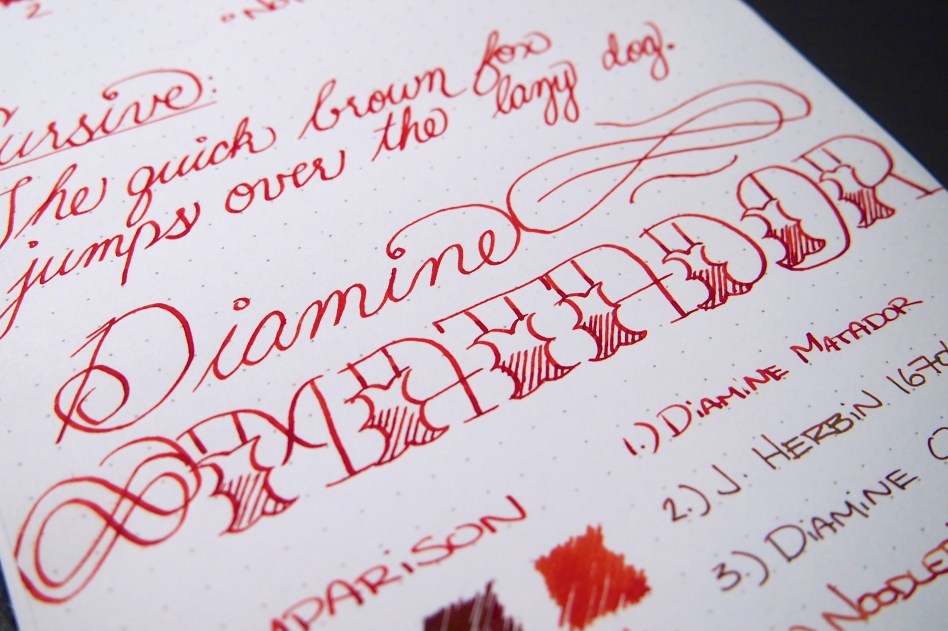 2
"No
Cursive:
The quick brown fox
jumps over the lazy dog.
Diamine
MATADOR
1.) DIAMINE MATADOR
2.) J. HERBIN 1670
3.) DIAMINE
NOODLE
MPARISON